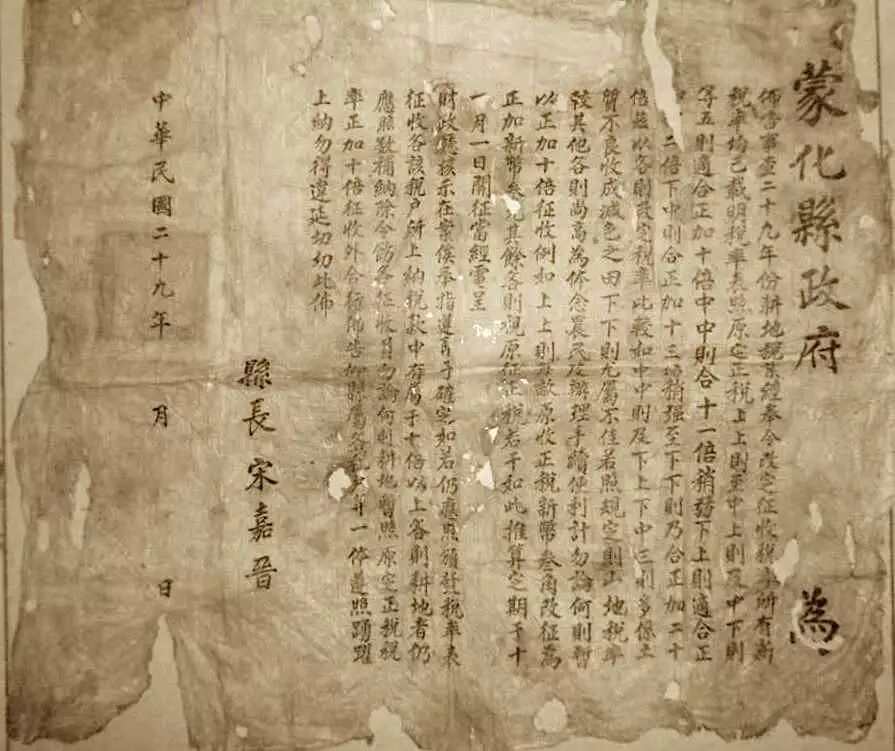 蒙化縣政府 為
佈告事查二十九年份耕地稅業經奉令改定征收稅率所有新
稅率均已載明稅率表照原定正稅上上則至中上則及中下則
等五則適合正加十倍中中則合十一倍稍強下上則適合正
二倍下中則合正加十三倍稍强至下下則乃合正加二十
倍茲以各則改定稅率比較如中中則及下上下中三則多係土
質不良收成減色之田下下則尤屬不佳若照規定則山地稅率
較其他各則尚高為体念農民及辦理手續便利計勿論何則暫
以正加十倍征收例如上上則每畝原收正稅新幣叁角改征為
正加新幣叁元其餘各則視原征正稅若干如此推算定期于十
一月一日開征當經電呈
財政廳核示在案俟奉指遵再予確定如若仍應照頒發稅率表
征收各該稅戶所上納稅款中有屬于十倍以上各則耕地者仍
應照數補納除令飭各征收員勿論何則耕地暫照原定正稅稅
率正加十倍征收外合行佈告仰縣屬各稅戶 一体遵照踴躍
上納勿得違延切切此佈
縣長 宋嘉晉
中華民國二十九年 月 日